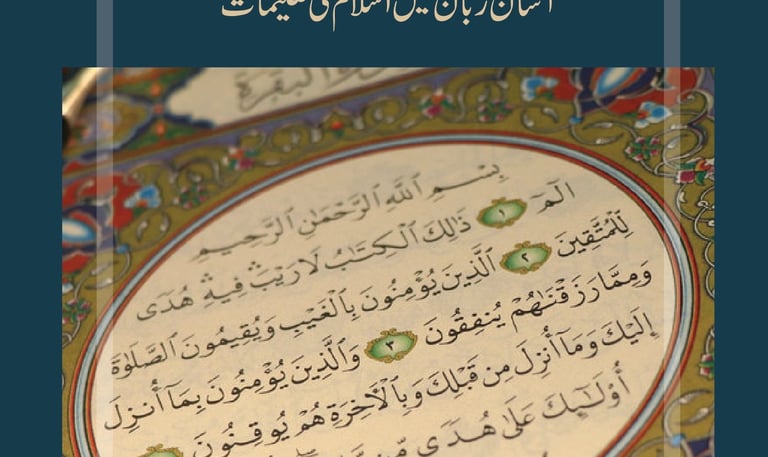 آسان زبان میں اسلام کی تعلیمات
البقرة
بِسْمِ اللَّهِ الرَّحْمَٰنِ الرَّحِيمِ
الٓمٓ ١ ذَٰلِكَ الْكِتَابُ لَا رَيْبَ فِيهِ هُدًى
لِّلْمُتَّقِينَ ٢ الَّذِينَ يُؤْمِنُونَ بِالْغَيْبِ وَيُقِيمُونَ الصَّلَاةَ
وَمِمَّا رَزَقْنَاهُمْ يُنفِقُونَ ٣ وَالَّذِينَ يُؤْمِنُونَ بِمَا أُنزِلَ
إِلَيْكَ وَمَا أُنزِلَ مِن قَبْلِكَ وَبِالْآخِرَةِ هُمْ يُوقِنُونَ
أُولَٰئِكَ عَلَىٰ هُدًى مِّن